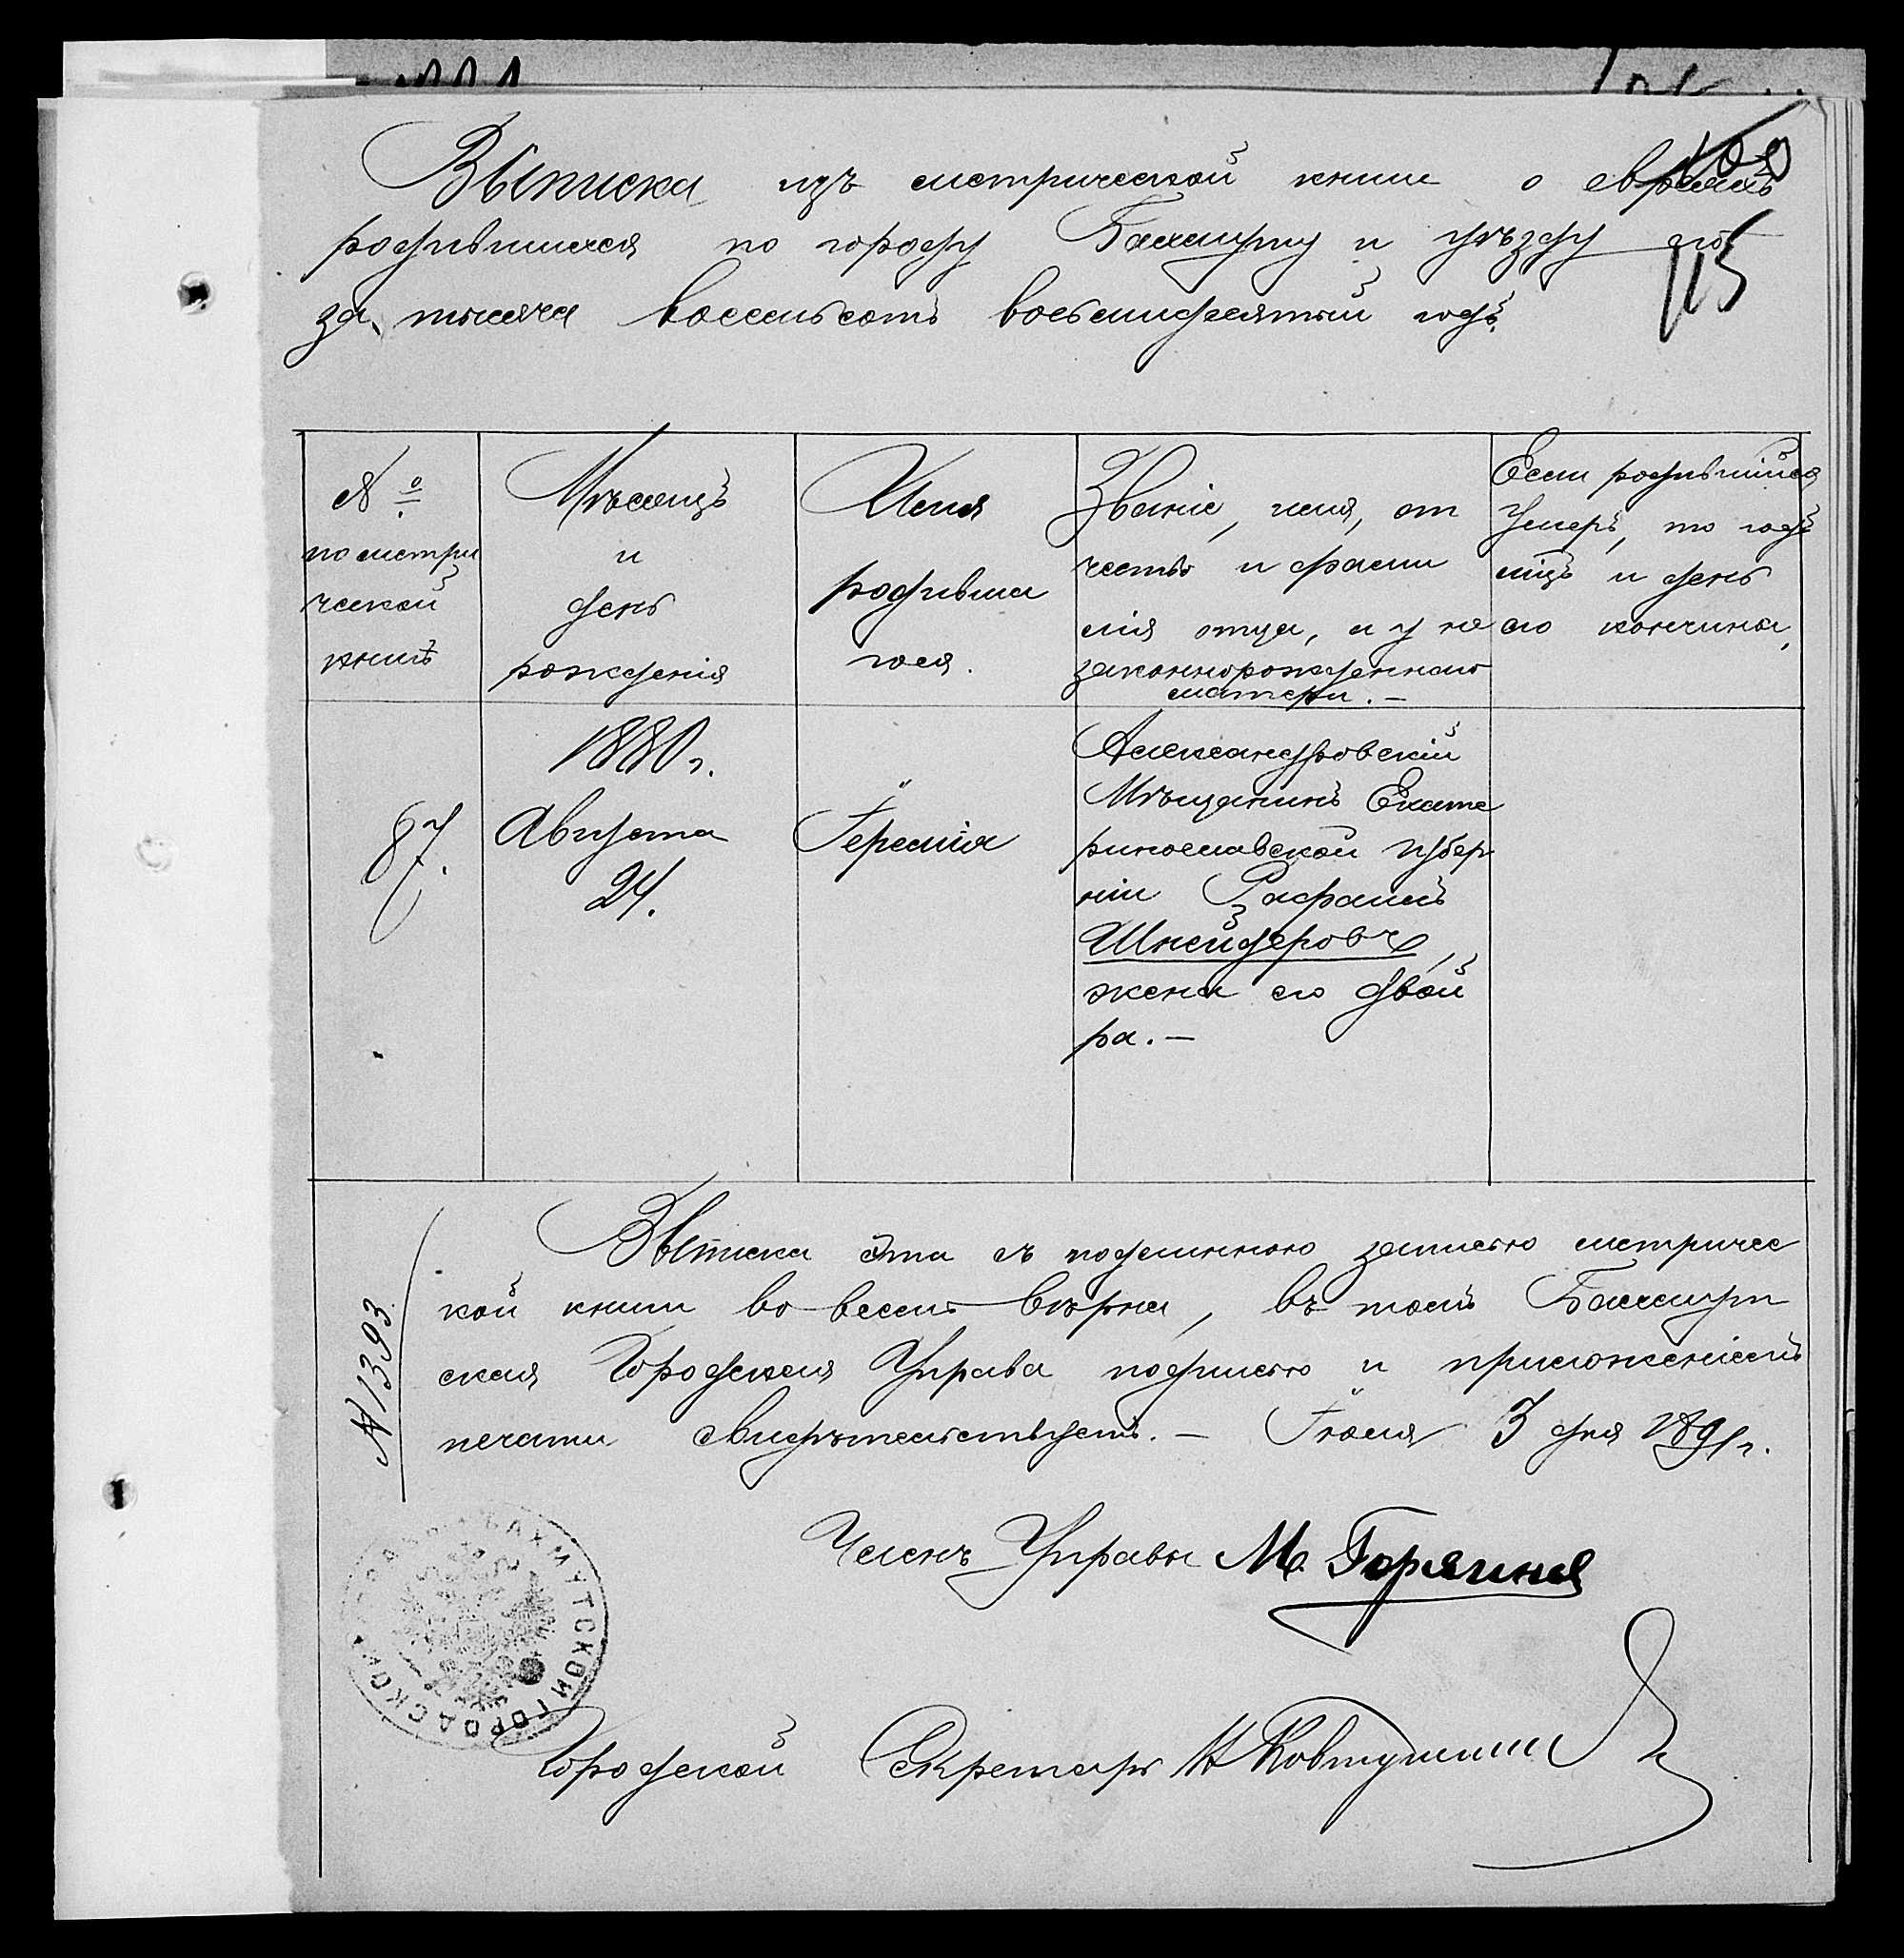 100
Выписка изъ метрической книги о евреяхъ
родившихся по городу Бахмуту и уѣзду его
115
за тысяча восемьсотъ восьмидесятый годъ.
№
по метри
ческой
книгѣ
Мѣсяцъ
и
день
рожденія
Имя
родивша
гося.
Званіе, имя, от
чество и фами
лія отца, а у не
законнорожденнаго
матери. —
Если родившійся
умеръ, то годъ
мцъ и день
его кончины,
87.
1880 г.
Августа
24.
Іеремія
Александровскій
Мѣщанинъ Екате
ринославской губер
ніи Рафаилъ
Шнейдеровъ,
жена его Двой
ра. —
Выписка эта съ подлинною записью метричес
кой книги во всемъ вѣрна, въ томъ Бахмут
ская Городская Управа подписью и приложеніемъ
печати свидѣтельствуетъ. — Іюля 3 дня 1891 г.
№ 1393
Членъ Управы М. Горяиновъ
БАХМУТСКОЙ ГОРОДСКОЙ
Городской Секретарь Н Ковтуш